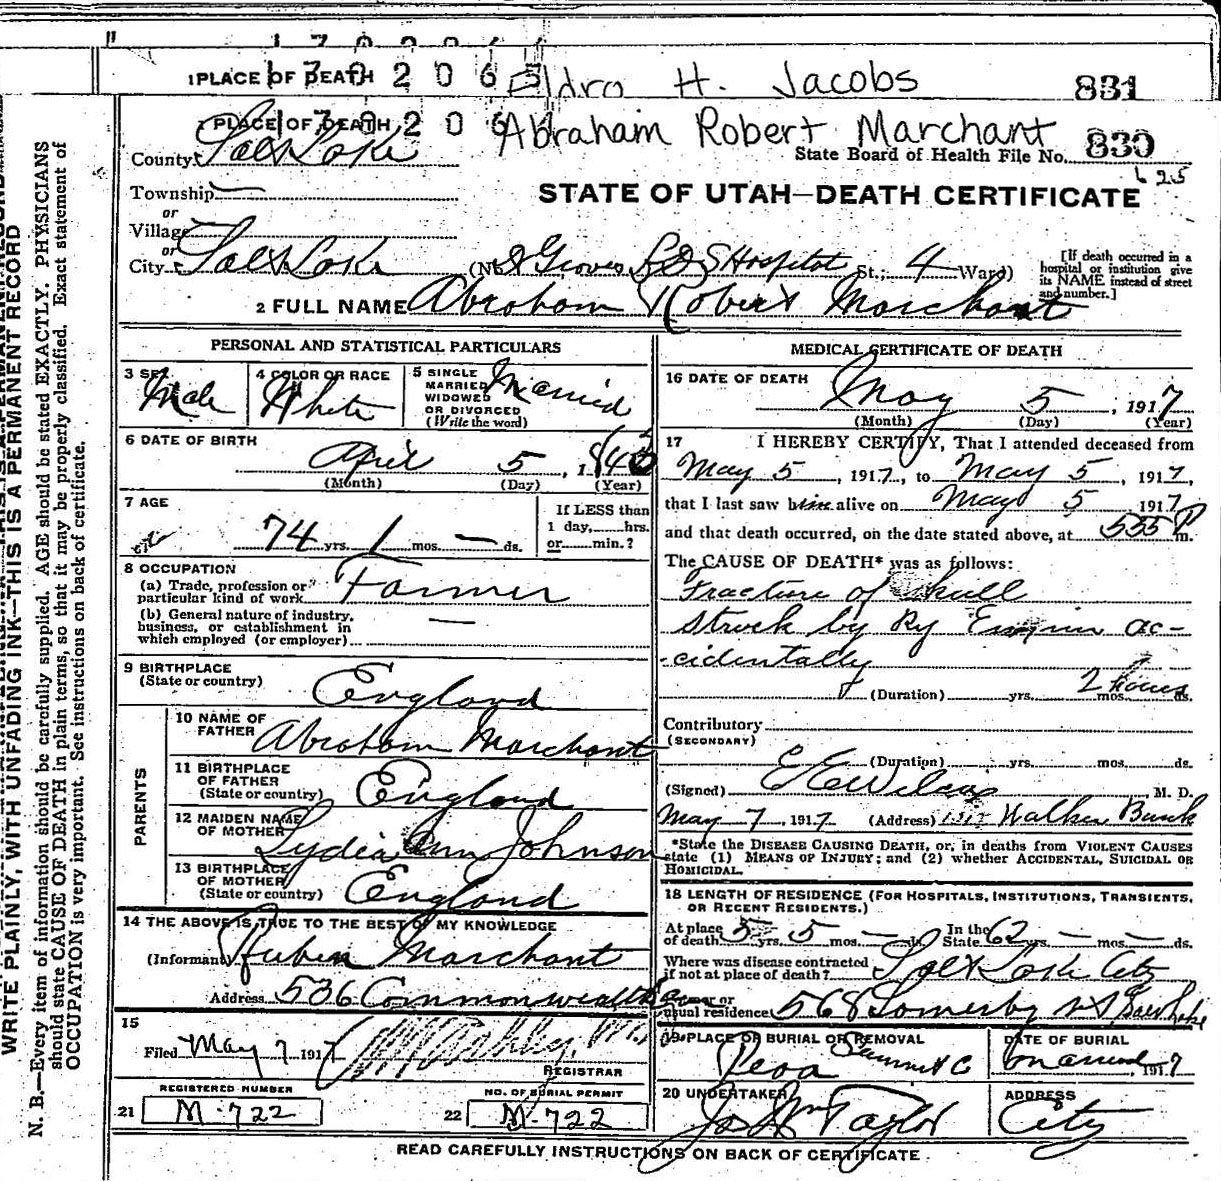 1 PLACE OF DEATH
1702065
Eldro H. Jacobs
831
PLACE OF DEATH
Abraham Robert Marchant
County Salt Lake
State Board of Health File No. 830
625
Township
or
Village
or
STATE OF UTAH—DEATH CERTIFICATE
City Salt Lake (No. Groves L D S Hospital St.; 4 Ward)
[If death occurred in a
hospital or institution give
its NAME instead of street
and number.]
2 FULL NAME Abraham Robert Marchant
PERSONAL AND STATISTICAL PARTICULARS
3 SEX
Male
4 COLOR OR RACE
White
5 SINGLE
MARRIED
WIDOWED
OR DIVORCED
(Write the word)
Married
6 DATE OF BIRTH
April 5, 184
(Month) (Day) (Year)
7 AGE
74 yrs. 1 mos. — ds.
If LESS than
1 day,......hrs.
or......min.?
8 OCCUPATION
(a) Trade, profession or
particular kind of work Farmer
(b) General nature of industry,
business, or establishment in
which employed (or employer) —
9 BIRTHPLACE
(State or country) England
PARENTS
10 NAME OF
FATHER Abraham Marchant
11 BIRTHPLACE
OF FATHER
(State or country) England
12 MAIDEN NAME
OF MOTHER Lydia Ann Johnson
13 BIRTHPLACE
OF MOTHER
(State or country) England
14 THE ABOVE IS TRUE TO THE BEST OF MY KNOWLEDGE
(Informant) Huben Marchant
Address 536 Commonwealth
15
Filed May 7 1917
REGISTRAR
REGISTERED NUMBER
21 M-722
NO. OF BURIAL PERMIT
22 M-722
MEDICAL CERTIFICATE OF DEATH
16 DATE OF DEATH
May 5, 1917
(Month) (Day) (Year)
17 I HEREBY CERTIFY, That I attended deceased from
May 5, 1917, to May 5, 1917,
that I last saw him alive on May 5 1917
and that death occurred, on the date stated above, at 555 P m.
The CAUSE OF DEATH* was as follows:
Fracture of Skull
Struck by Ry Engine ac-
cidentally
(Duration) yrs. mos. ds. 2 hours
Contributory
(SECONDARY)
(Duration) yrs. mos. ds.
(Signed) E E Wilcox, M. D.
May 7, 1917 (Address) Walker Bank
*State the DISEASE CAUSING DEATH, or, in deaths from VIOLENT CAUSES
state (1) MEANS OF INJURY; and (2) whether ACCIDENTAL, SUICIDAL OR
HOMICIDAL.
18 LENGTH OF RESIDENCE (FOR HOSPITALS, INSTITUTIONS, TRANSIENTS,
OR RECENT RESIDENTS.)
At place
of death 5 yrs. 5 mos. — ds. In the
State 62 yrs. — mos. — ds.
Where was disease contracted
if not at place of death? Salt Lake City
Former or
usual residence 568 Salt Lake
19 PLACE OF BURIAL OR REMOVAL
Peoa Summit C
DATE OF BURIAL
1917
20 UNDERTAKER
Jos Wm Taylor
ADDRESS
City
READ CAREFULLY INSTRUCTIONS ON BACK OF CERTIFICATE
WRITE PLAINLY, WITH UNFADING INK—THIS IS A PERMANENT RECORD
N. B.—Every item of information should be carefully supplied. AGE should be stated EXACTLY. PHYSICIANS
should state CAUSE OF DEATH in plain terms, so that it may be properly classified. Exact statement of
OCCUPATION is very important. See instructions on back of certificate.